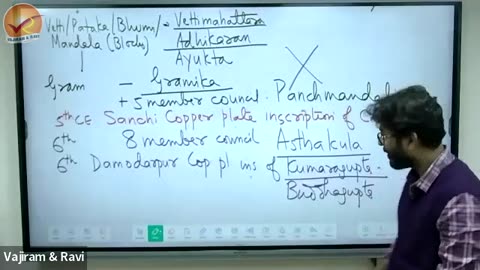 VAJIRAM & RAVI
Vetti/Pataka/Bhumi/ Vettimahattara
Mandala (Blocks) Adhikaran
Ayukta
Gram - Gramika
+ 5 member council. Panchmandal
5th CE Sanchi Copper plate inscription of
6th 8 member council Asthakula
6th Damodarpur Cop pl ins of Kumaragupta.
Budhagupta
Vajiram & Ravi
zoom